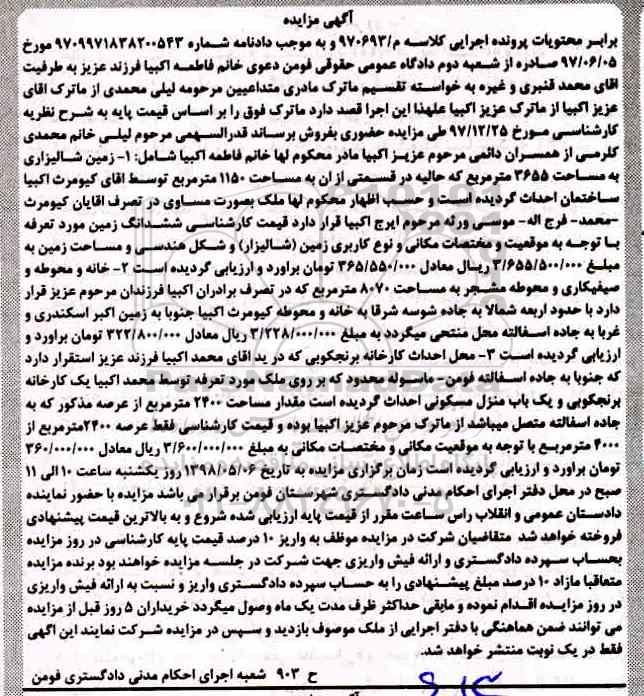 آگهی مزایده
برابر محتویات پرونده اجرایی کلاسه م/۹۷۰۶۹۳ و به موجب دادنامه شماره ۹۷۰۹۹۷۱۸۳۸۲۰۰۵۴۳ مورخ
۹۷/۰۶/۰۵ صادره از شعبه دوم دادگاه عمومی حقوقی فومن دعوی خانم فاطمه اکبیا فرزند عزیز به طرفیت
اقای محمد قنبری و غیره به خواسته تقسیم ماترک مادری متداعیین مرحومه لیلی محمدی از ماترک اقای
عزیز اکبیا از ماترک عزیز اکبیا علهذا این اجرا قصد دارد ماترک فوق را بر اساس قیمت پایه به شرح نظریه
کارشناسی مورخ ۹۷/۱۲/۲۵ طی مزایده حضوری بفروش برساند قدرالسهمی مرحوم لیلی خانم محمدی
کلرمی از همسران دائمی مرحوم عزیز اکبیا مادر محکوم لها خانم فاطمه اکبیا شامل: ۱- زمین شالیزاری
به مساحت ۳۶۵۵ مترمربع که حالیه در قسمتی از ان به مساحت ۱۱۵۰ مترمربع توسط اقای کیومرث اکبیا
ساختمان احداث گردیده است و حسب اظهار محکوم لها ملک بصورت مساوی در تصرف اقایان کیومرث
-محمد- فرج اله- موسی ورثه مرحوم ایرج اکبیا قرار دارد قیمت کارشناسی ششدانگ زمین مورد تعرفه
با توجه به موقعیت و مختصات مکانی و نوع کاربری زمین (شالیزار) و شکل هندسی و مساحت زمین به
مبلغ ۳/۶۵۵/۵۰۰/۰۰۰ ریال معادل ۳۶۵/۵۵۰/۰۰۰ تومان براورد و ارزیابی گردیده است ۲- خانه و محوطه و
صیفیکاری و محوطه مشجر به مساحت ۸۰۷۰ مترمربع که در تصرف برادران اکبیا فرزندان مرحوم عزیز قرار
دارد با حدود اربعه شمالا به جاده شوسه شرقا به خانه و محوطه کیومرث اکبیا جنوبا به زمین اکبر اسکندری و
غربا به جاده اسفالته محل منتحی میگردد به مبلغ ۳/۲۲۸/۰۰۰/۰۰۰ ریال معادل ۳۲۲/۸۰۰/۰۰۰ تومان براورد و
ارزیابی گردیده است ۳- محل احداث کارخانه برنجکوبی که در ید اقای محمد اکبیا فرزند عزیز استقرار دارد
که جنوبا به جاده اسفالته فومن-ماسوله محدود که بر روی ملک مورد تعرفه توسط محمد اکبیا یک کارخانه
برنجکوبی و یک باب منزل مسکونی احداث گردیده است مقدار مساحت ۲۴۰۰ مترمربع از عرصه مذکور که به
جاده اسفالته متصل میباشد از ماترک مرحوم عزیز اکبیا بوده و قیمت کارشناسی فقط عرصه ۲۴۰۰مترمربع از
۴۰۰۰ مترمربع با توجه به موقعیت مکانی و مختصات مکانی به مبلغ ۳/۶۰۰/۰۰۰/۰۰۰ ریال معادل ۳۶۰/۰۰۰/۰۰۰
تومان براورد و ارزیابی گردیده است زمان برگزاری مزایده به تاریخ ۱۳۹۸/۰۵/۰۶ روز یکشنبه ساعت ۱۰ الی ۱۱
صبح در محل دفتر اجرای احکام مدنی دادگستری شهرستان فومن برقرار می باشد مزایده با حضور نماینده
دادستان عمومی و انقلاب راس ساعت مقرر از قیمت پایه ارزیابی شده شروع و به بالاترین قیمت پیشنهادی
فروخته خواهد شد متقاضیان شرکت در مزایده موظف به واریز ۱۰ درصد قیمت پایه کارشناسی در روز مزایده
بحساب سپرده دادگستری و ارائه فیش واریزی جهت شرکت در جلسه مزایده خواهند بود برنده مزایده
متعاقبا مازاد ۱۰ درصد مبلغ پیشنهادی را به حساب سپرده دادگستری واریز و نسبت به ارائه فیش واریزی
در روز مزایده اقدام نموده و مابقی حداکثر ظرف مدت یک ماه وصول میگردد خریداران ۵ روز قبل از مزایده
می توانند ضمن هماهنگی با دفتر اجرایی از ملک موصوف بازدید و سپس در مزایده شرکت نمایند این آگهی
فقط در یک نوبت منتشر خواهد شد.
ح ۹۰۳ شعبه اجرای احکام مدنی دادگستری فومن